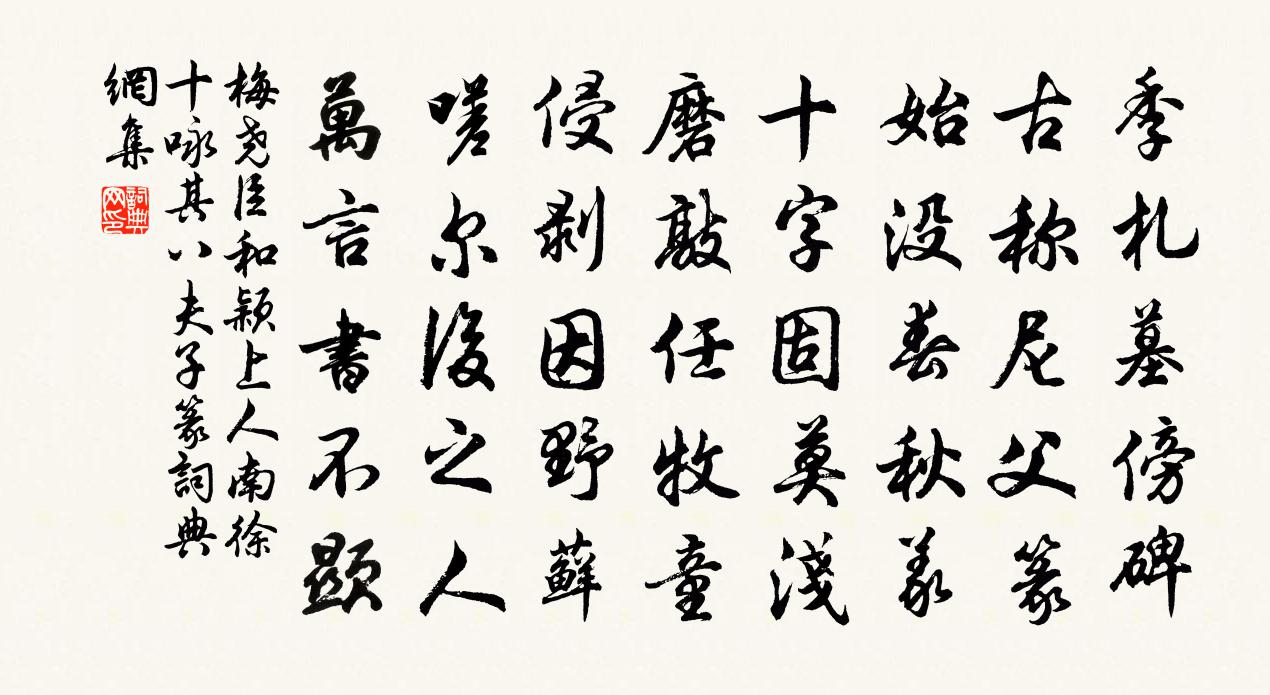 季札墓傍碑
古称尼父篆
始没春秋義
十字固莫淺
磨敲任牧童
侵剥因野蘚
嗟尔後之人
萬言書不顕
梅尧臣和颖上人南徐
十咏其八夫子篆詞典
網集
詞典网印